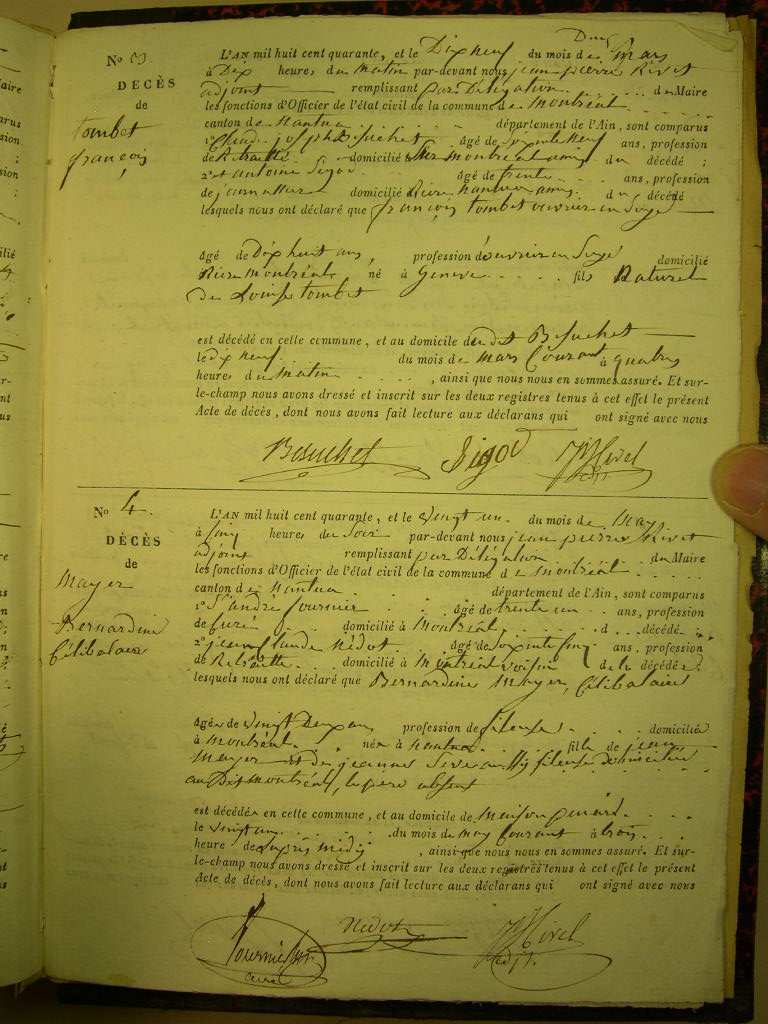 No 3
DÉCÈS
de
tombet
françois
L'AN mil huit cent quarante, et le Dix neuf du mois de Mars
à Dix heures du matin par-devant nous jean pierre Rivet
adjoint remplissant par Délégation du Maire
les fonctions d'Officier de l'état civil de la commune de Montréal
canton de Nantua département de l'Ain, sont comparus
1o Claude joseph Besuchet âgé de soixante neuf ans, profession
de Retraitté domicilié à Montréal ami du décédé ;
2o et antoine Sigod âgé de trente ans, profession
de journallier domicilié Rière nantua ami du décédé
lesquels nous ont déclaré que françois tombet ouvrier en Soye
âgé de Dix huit ans, profession d'ouvrier en Soye domicilié
Rière Montréal né à Genève fils Naturel
de Louise tombet
est décédé en cette commune, et au domicile du dit Besuchet
le dix neuf du mois de mars Courant à quatre
heures du matin, ainsi que nous nous en sommes assuré. Et sur-
le-champ nous avons dressé et inscrit sur les deux registres tenus à cet effet le présent
Acte de décès, dont nous avons fait lecture aux déclarans qui ont signé avec nous
Besuchet Sigod JP Rivet
adjt
No 4.
DÉCÈS
de
Mayer
Bernardine
Célibataire
L'AN mil huit cent quarante, et le vingt un du mois de May
à Cinq heures du Soir par-devant nous jean pierre Rivet
adjoint remplissant par Délégation du Maire
les fonctions d'Officier de l'état civil de la commune de Montréal
canton de Nantua département de l'Ain, sont comparus
1o andré fournier âgé de trente un ans, profession
de Curé domicilié à Montréal d décédé
2o jean Claude Nédot âgé de soixante cinq ans, profession
de Retraitté domicilié à Montréal voisin de la décédée
lesquels nous ont déclaré que Bernardine Mayer, Célibataire
âgée de vingt Deux ans profession de fileuse domicilié
à Montréal, née à nantua fille de jean
Mayer et de jeanne aussy fileuse Domiciliée
au Dit Montréal, le père absent
est décédée en cette commune, et au domicile de Maison
le vingt un du mois de may Courant à trois
heure de l'après midy, ainsi que nous nous en sommes assuré. Et sur-
le-champ nous avons dressé et inscrit sur les deux registres tenus à cet effet le présent
Acte de décès, dont nous avons fait lecture aux déclarans qui ont signé avec nous
Fournier Nedot JP Rivet
curé adjt.